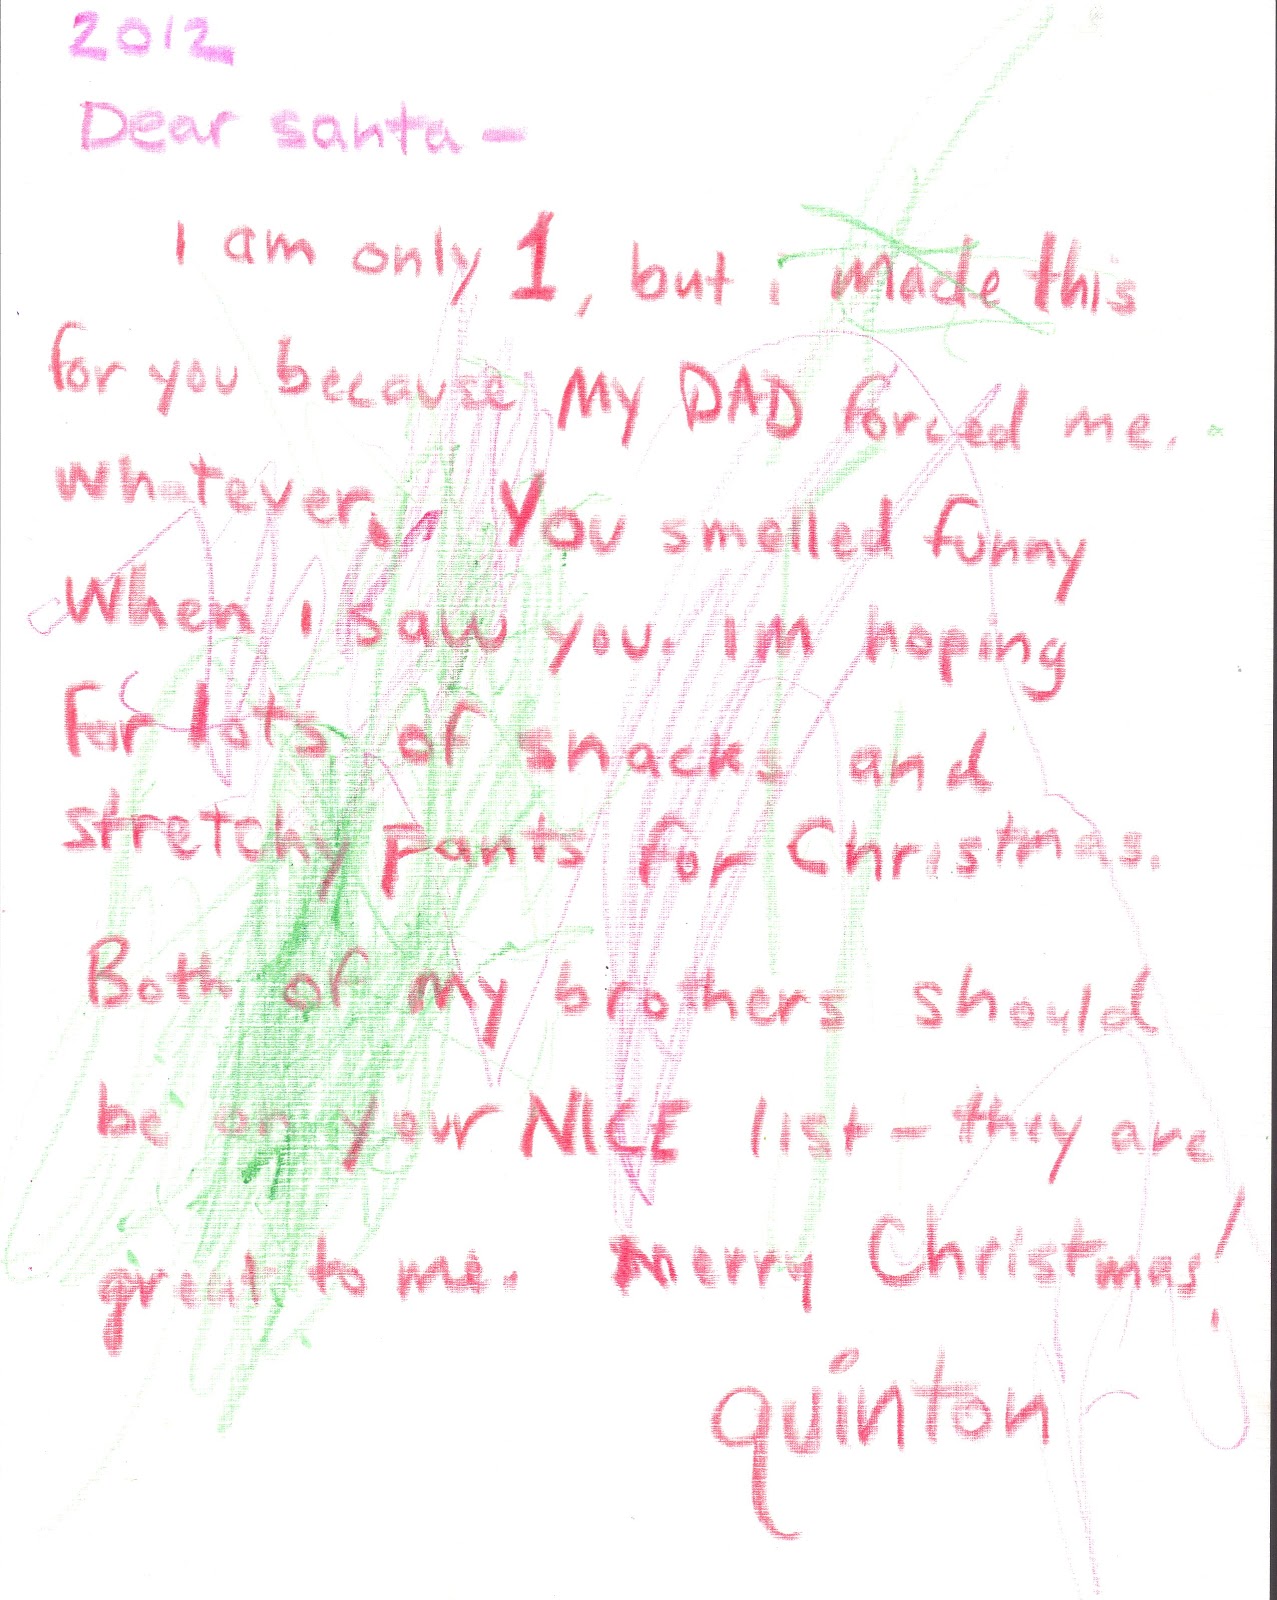 2012
Dear santa -
I am only 1, but i made this
for you because MY DAD forced me.
whatever. You smelled funny
When I saw you. IM hoping
For lots of snacks and
stretchy Pants for Christmas.
Both of my brothers should
be on your NICE list - they are
great to me. Merry Christmas!
quinton